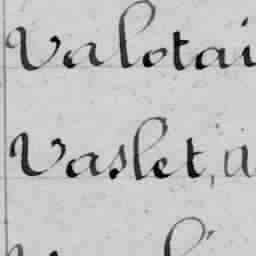 Valotai
Vaslet, a